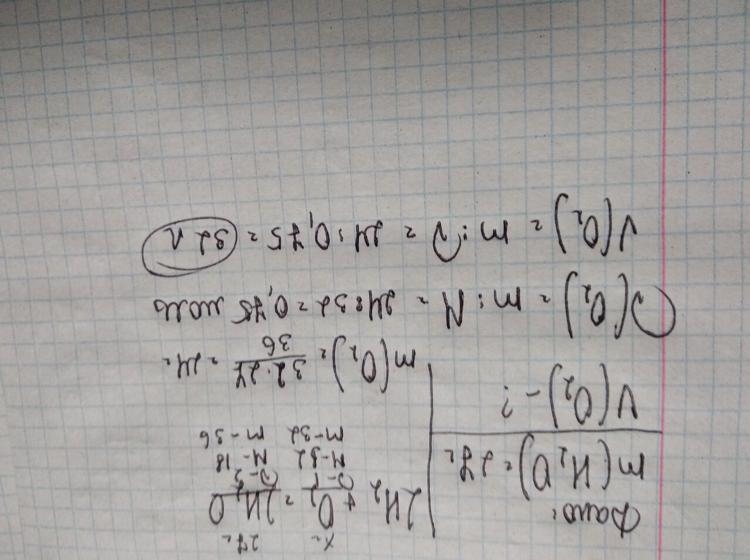 Дано:
m(H₂O)=27г
V(O₂)-?
xг 27г
2H₂+O₂=2H₂O
ν-1 ν-2
M-32 M-18
m-32 m-36
m(O₂)=32·27/36=24г
ν(O₂)=m:M=24:32=0,75 моль
V(O₂)=m:ν=24:0,75=32 л